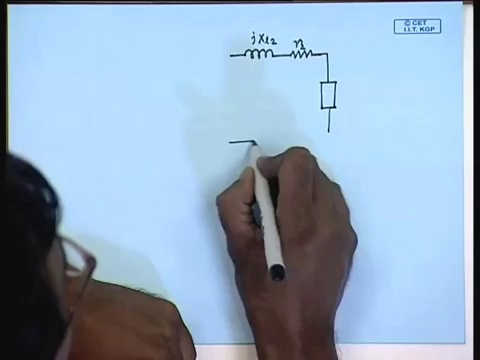 © CET
I.I.T. KGP
jxl2 r2